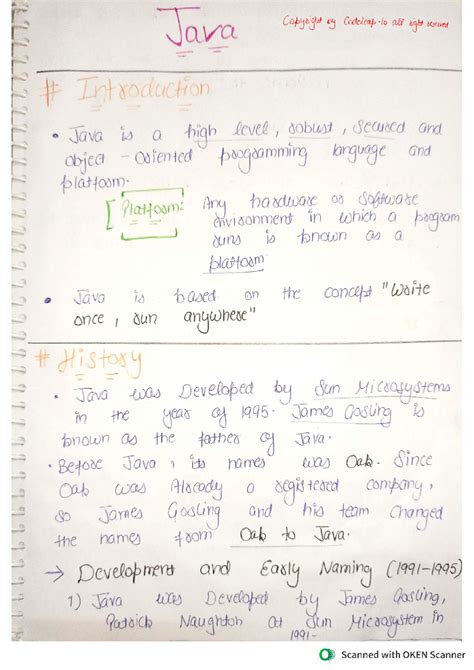 Java
Copyright by Codeicap.io all right reserved
# Introduction
• Java is a high level, robust, secured and
object-oriented programming language and
platform.
Platform: Any hardware or software
environment in which a program
runs is known as a
platform
• Java is based on the concept "write
once, run anywhere"
# History
• Java was Developed by Sun Microsystems
in the year of 1995. James Gosling is
known as the father of Java.
• Before Java, its names was Oak. Since
Oak was Already a registered company,
so James Gosling and his team changed
the names from Oak to Java.
→ Development and Early Naming (1991-1995)
1) Java was Developed by James Gosling,
Patrick Naughton at Sun Microsystem in
1991-
Scanned with OKEN Scanner